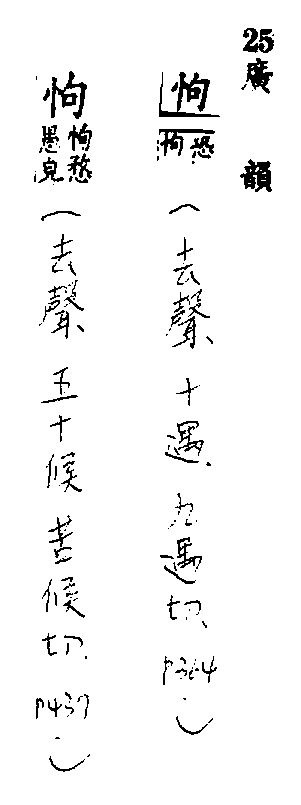 25廣韻
怐 恐怐（去聲、十遇、九遇切、P364）
怐 怐愗愚皃（去聲、五十候苦候切、P439）